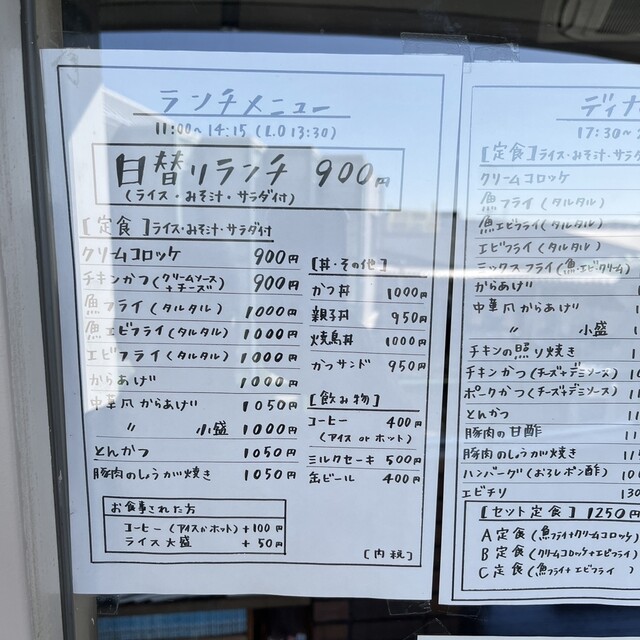 ランチメニュー
11:00~14:15 (L.O 13:30)
日替りランチ 900円
(ライス・みそ汁・サラダ付)
[定食] ライス・みそ汁・サラダ付
クリームコロッケ 900円
チキンかつ (クリームソース+チーズ) 900円
魚フライ (タルタル) 1000円
魚エビフライ (タルタル) 1000円
エビフライ (タルタル) 1000円
からあげ 1000円
中華風からあげ 1050円
〃 小盛 1000円
とんかつ 1050円
豚肉のしょうが焼き 1050円
[丼・その他]
かつ丼 1000円
親子丼 950円
焼鳥丼 1000円
かつサンド 950円
[飲み物]
コーヒー 400円
(アイス or ホット)
ミルクセーキ 500円
缶ビール 400円
お食事された方
コーヒー (アイスかホット) +100円
ライス大盛 +50円
[内税]
ディナ
17:30~
[定食] ライス・みそ汁・サラダ
クリームコロッケ
魚フライ (タルタル)
魚エビフライ (タルタル)
エビフライ (タルタル)
ミックスフライ (魚・エビ・クリーム)
からあげ
中華風からあげ
〃 小盛
チキンの照り焼き
チキンかつ (チーズ+デミソース)
ポークかつ (チーズ+デミソース)
とんかつ
豚肉の甘酢
豚肉のしょうが焼き
ハンバーグ (おろしポン酢)
エビチリ
[セット定食] 1250円
A定食 (魚フライ+クリームコロッケ)
B定食 (クリームコロッケ+エビフライ)
C定食 (魚フライ+エビフライ)